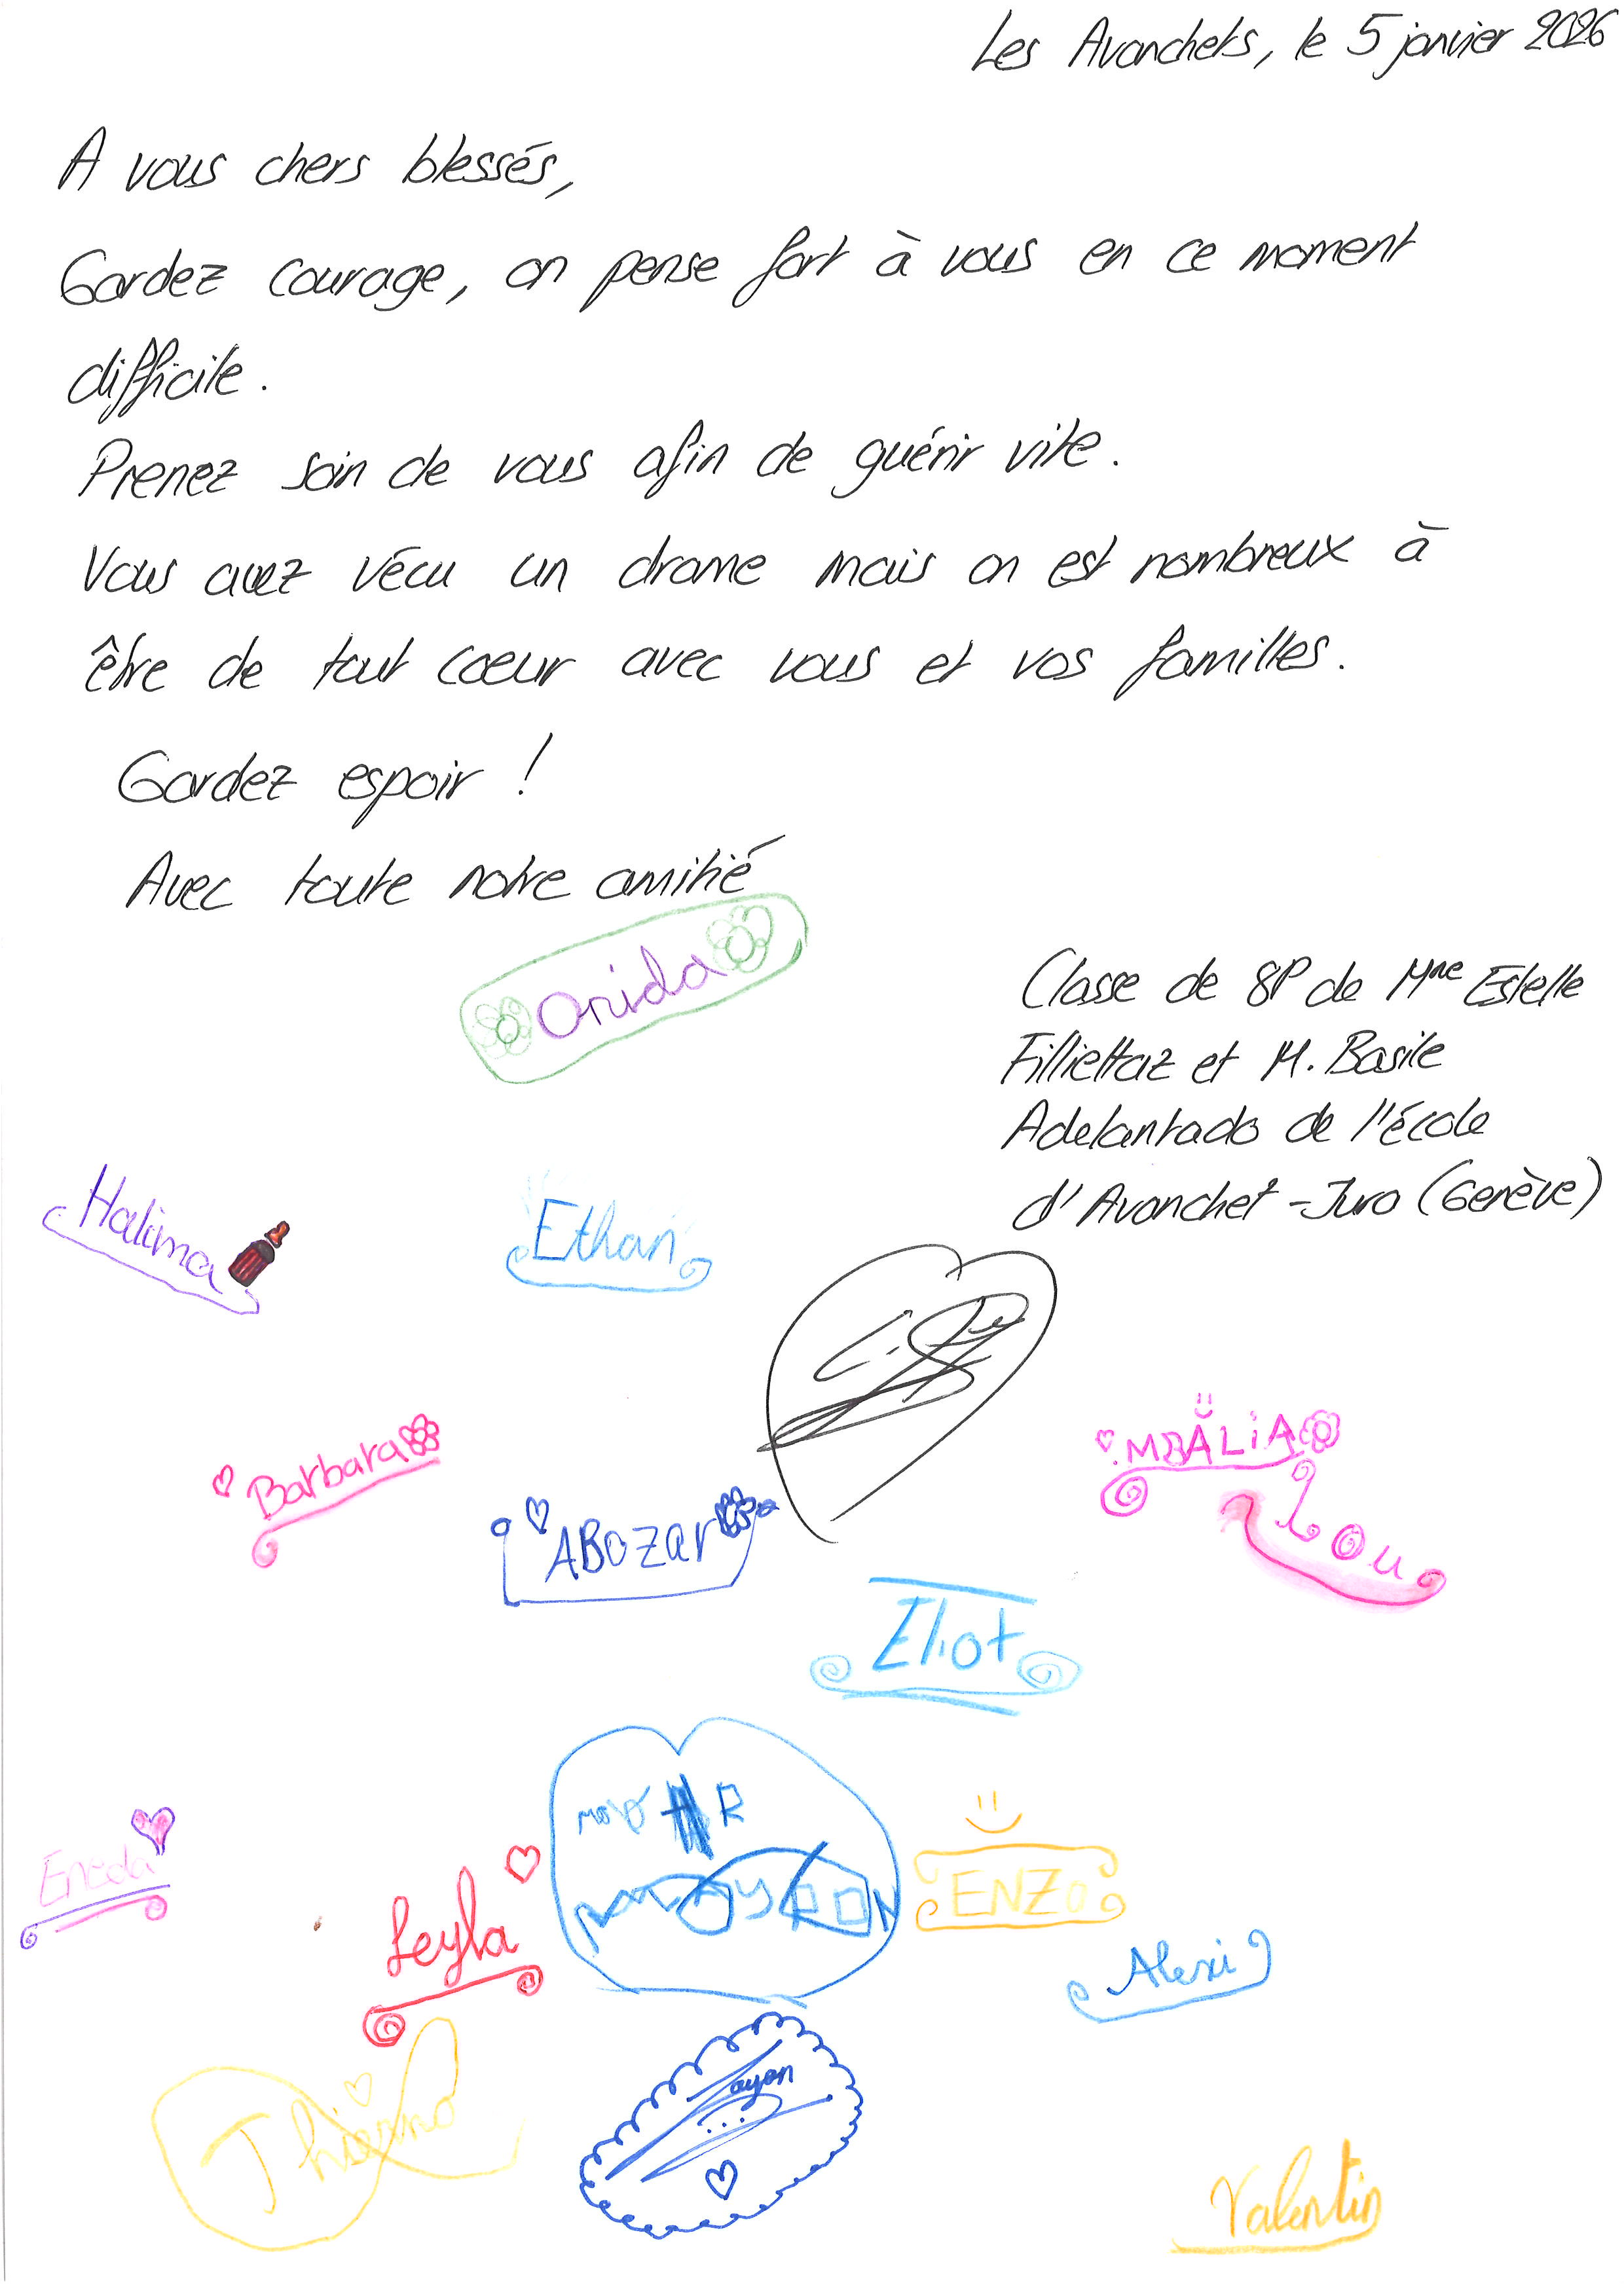 Les Avanchets, le 5 janvier 2026
A vous chers blessés,
Gardez courage, on pense fort à vous en ce moment
difficile.
Prenez soin de vous afin de guérir vite.
Vous avez vécu un drame mais on est nombreux à
être de tout coeur avec vous et vos familles.
Gardez espoir !
Avec toute notre amitié
Onida
Classe de 8P de Mme Estelle
Fillettaz et M. Basile
Adelantado de l'école
d'Avanchet-Jura (Genève)
Halima
Ethan
Barbara
ABozar
MBALiA
Lou
Eliot
Eneda
Leyla
ENZo
Alexi
Thierno
Zayon
Valentin